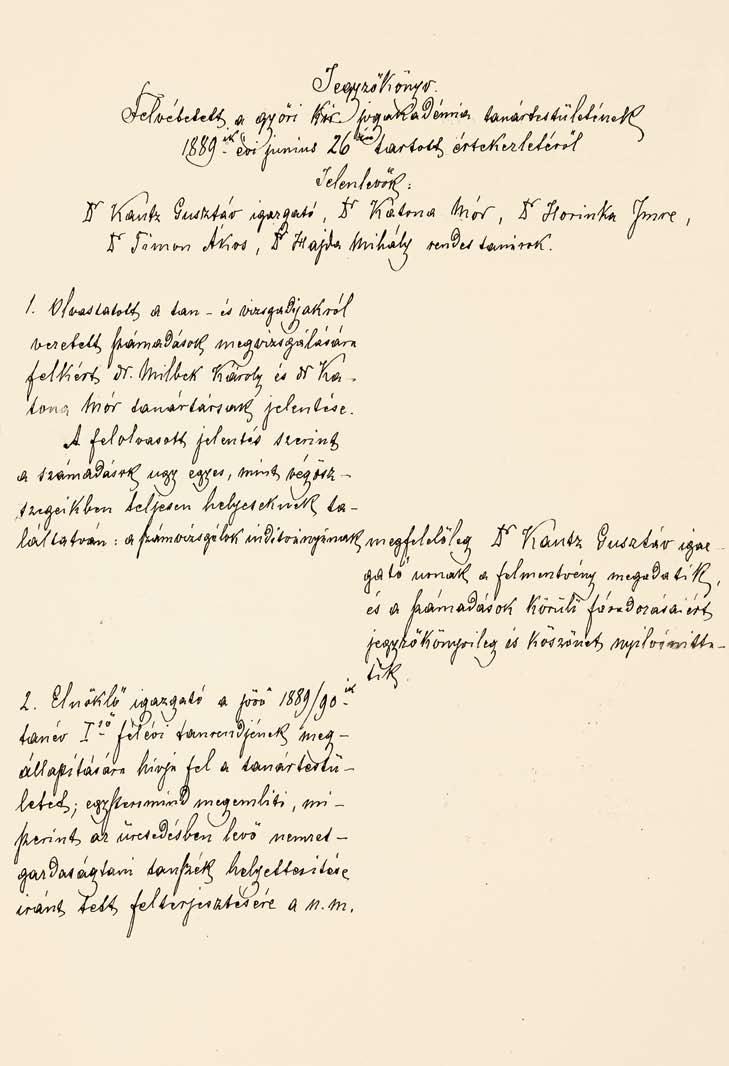 Jegyzőkönyv.
Felvétetett a győri kir. jogakadémia tanártestületének
1889ik évi junius 26án tartott értekezletéről
Jelenlevők:
Dr Kautz Gusztáv igazgató, Dr Katona Mór, Dr Horinka Imre,
Dr Timon Ákos, Dr Hajda Mihály rendes tanárok.
1. Olvastatott a tan- és vizsgadijakról
vezetett számadások megvizsgálására
felkért dr. Milbek Károly és dr Ka-
tona Mór tanártársak jelentése.
A felolvasott jelentés szerint
a számadások ugy egyes, mint végösz-
szegeikben teljesen helyeseknek ta-
láltatván: a számvizsgálok inditványának megfelelőleg Dr Kautz Gusztáv igaz-
gató urnak a felmentvény megadatik,
és a számadások körüli fáradozásaiért
jegyzőkönyvileg is köszönet nyilvánitta-
tik.
2. Elnöklő igazgató a jövő 1889/90-ik
tanév I-ső félévi tanrendjének meg-
állapítására hívja fel a tanártestü-
letet; egyszersmind megemliti, mi-
szerint az üresedésben levő nemzet-
gazdaságtani tanszék helyettesitése
iránt tett felterjesztésére a n. m.